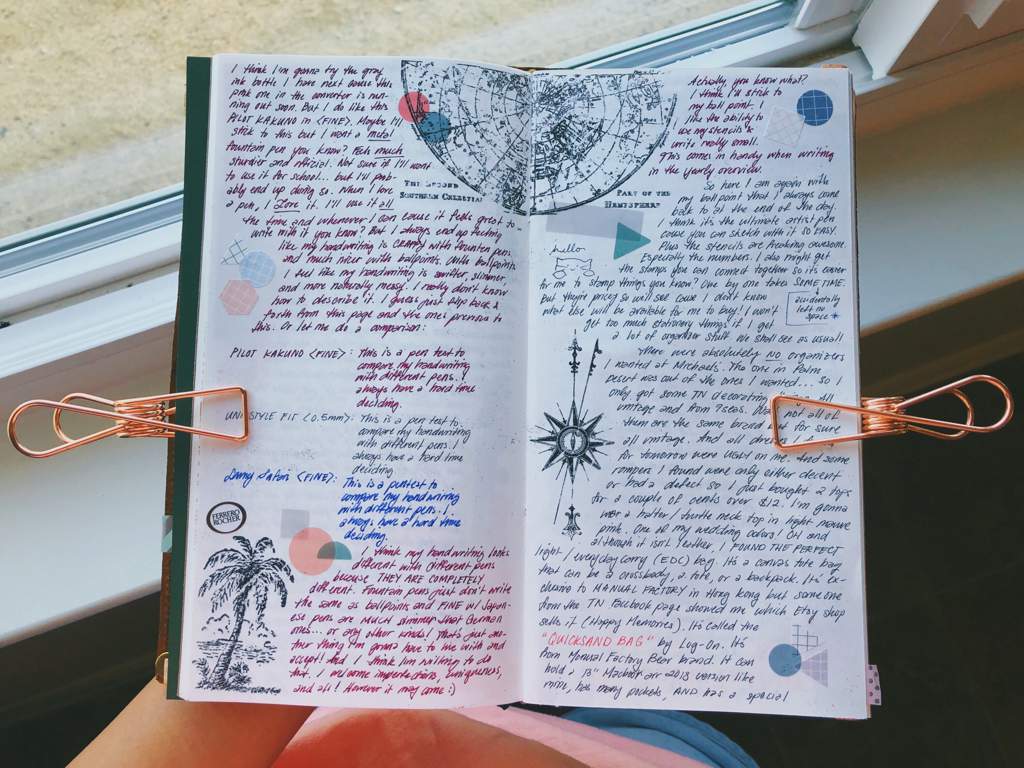 I think I'm gonna try the gray
ink bottle I have next cause this
pink one in the converter is run-
ning out soon. But I do like this
PILOT KAKUNO in <FINE>. Maybe I'll
stick to this but I want a metal
fountain pen you know? Feels much
sturdier and official. Not sure if I'll want
to use it for school... but I'll prob-
ably end up doing so. When I love
a pen, I Love it. I'll use it all
the time and whenever I can cause it feels great to
write with it you know? But I always end up feeling
like my handwriting is CRAPPY with fountain pens
and much nicer with ballpoints. With ballpoints
I feel like my handwriting is swifter, slimmer,
and more naturally messy. I really don't know
how to describe it. I guess just flip back &
forth from this page and the ones previous to
this. Or let me do a comparison:
PILOT KAKUNO <FINE>: This is a pen test to
compare my handwriting
with different pens. I
always have a hard time
deciding.
UNI STYLE FIT <0.5mm>: This is a pen test to
compare my handwriting
with different pens. I
always have a hard time
deciding
<FINE>: This is a pentest to
compare my handwriting
with different pens. I
always have a hard time
deciding.
FERRERO
ROCHER
I think my handwriting looks
different with different pens
because THEY ARE COMPLETELY
different. Fountain pens just don't write
the same as ballpoints and FINE w/ Japan-
ese pens are MUCH slimmer that German
ones... or any other kinds! That's just ano-
ther thing I'm gonna have to live with and
accept! And I think I'm willing to do
that. I welcome imperfections, uniqueness,
and all! However it may come :)
THE SECOND
SOUTHERN CELESTIAL
PART OF THE
HEMISPHERE
Actually you know what?
I think I'll stick to
my ball point. I
like the ability to
use my stencils &
write really small.
This comes in handy when writing
in the yearly overview.
So here I am again with
my ballpoint that I always come
back to at the end of the day.
I think it's the ultimate artist pen
cause you can sketch with it so EASY.
Plus the stencils are freaking awesome.
Especially the numbers. I also might get
the stamps you can connect together so its easier
for me to stamp things you know? One by one takes SOMETIME.
But they're pricey so will see cause I didn't know
what else will be available for me to buy! I won't
get too much stationery things if I get
a lot of organizer stuff. We shall see as usual!
hello
accidentally
left no
space
There were absolutely NO organizers
I wanted at Michaels. The one in Palm
Desert was out of the ones I wanted... so I
only got some TN decorating All
vintage and from 7seas. not all of
them are the same brand but for sure
all vintage. And all dresses
for tomorrow were UGLY on me. And some
rompers I found were only either decent
or had a defect so I just bought 2 tops
for a couple of cents over $12. I'm gonna
wear a halter / turtle neck top in light mauve
pink. One of my wedding colors! Oh and
although it isn't leather, I FOUND THE PERFECT
light / everyday carry (EDC) bag. Its a canvas tote bag
that can be a crossbody, a tote, or a backpack. It's ex-
clusive to MANUAL FACTORY in Hong Kong but someone
from the TN Facebook page showed me which Etsy shop
sells it (Happy Memories). It's called the
"QUICKSAND BAG" by Log-On. It's
from Manual Factory Beer brand. It can
hold a 13" MacBook air 2013 version like
mine, has many pockets, AND has a special